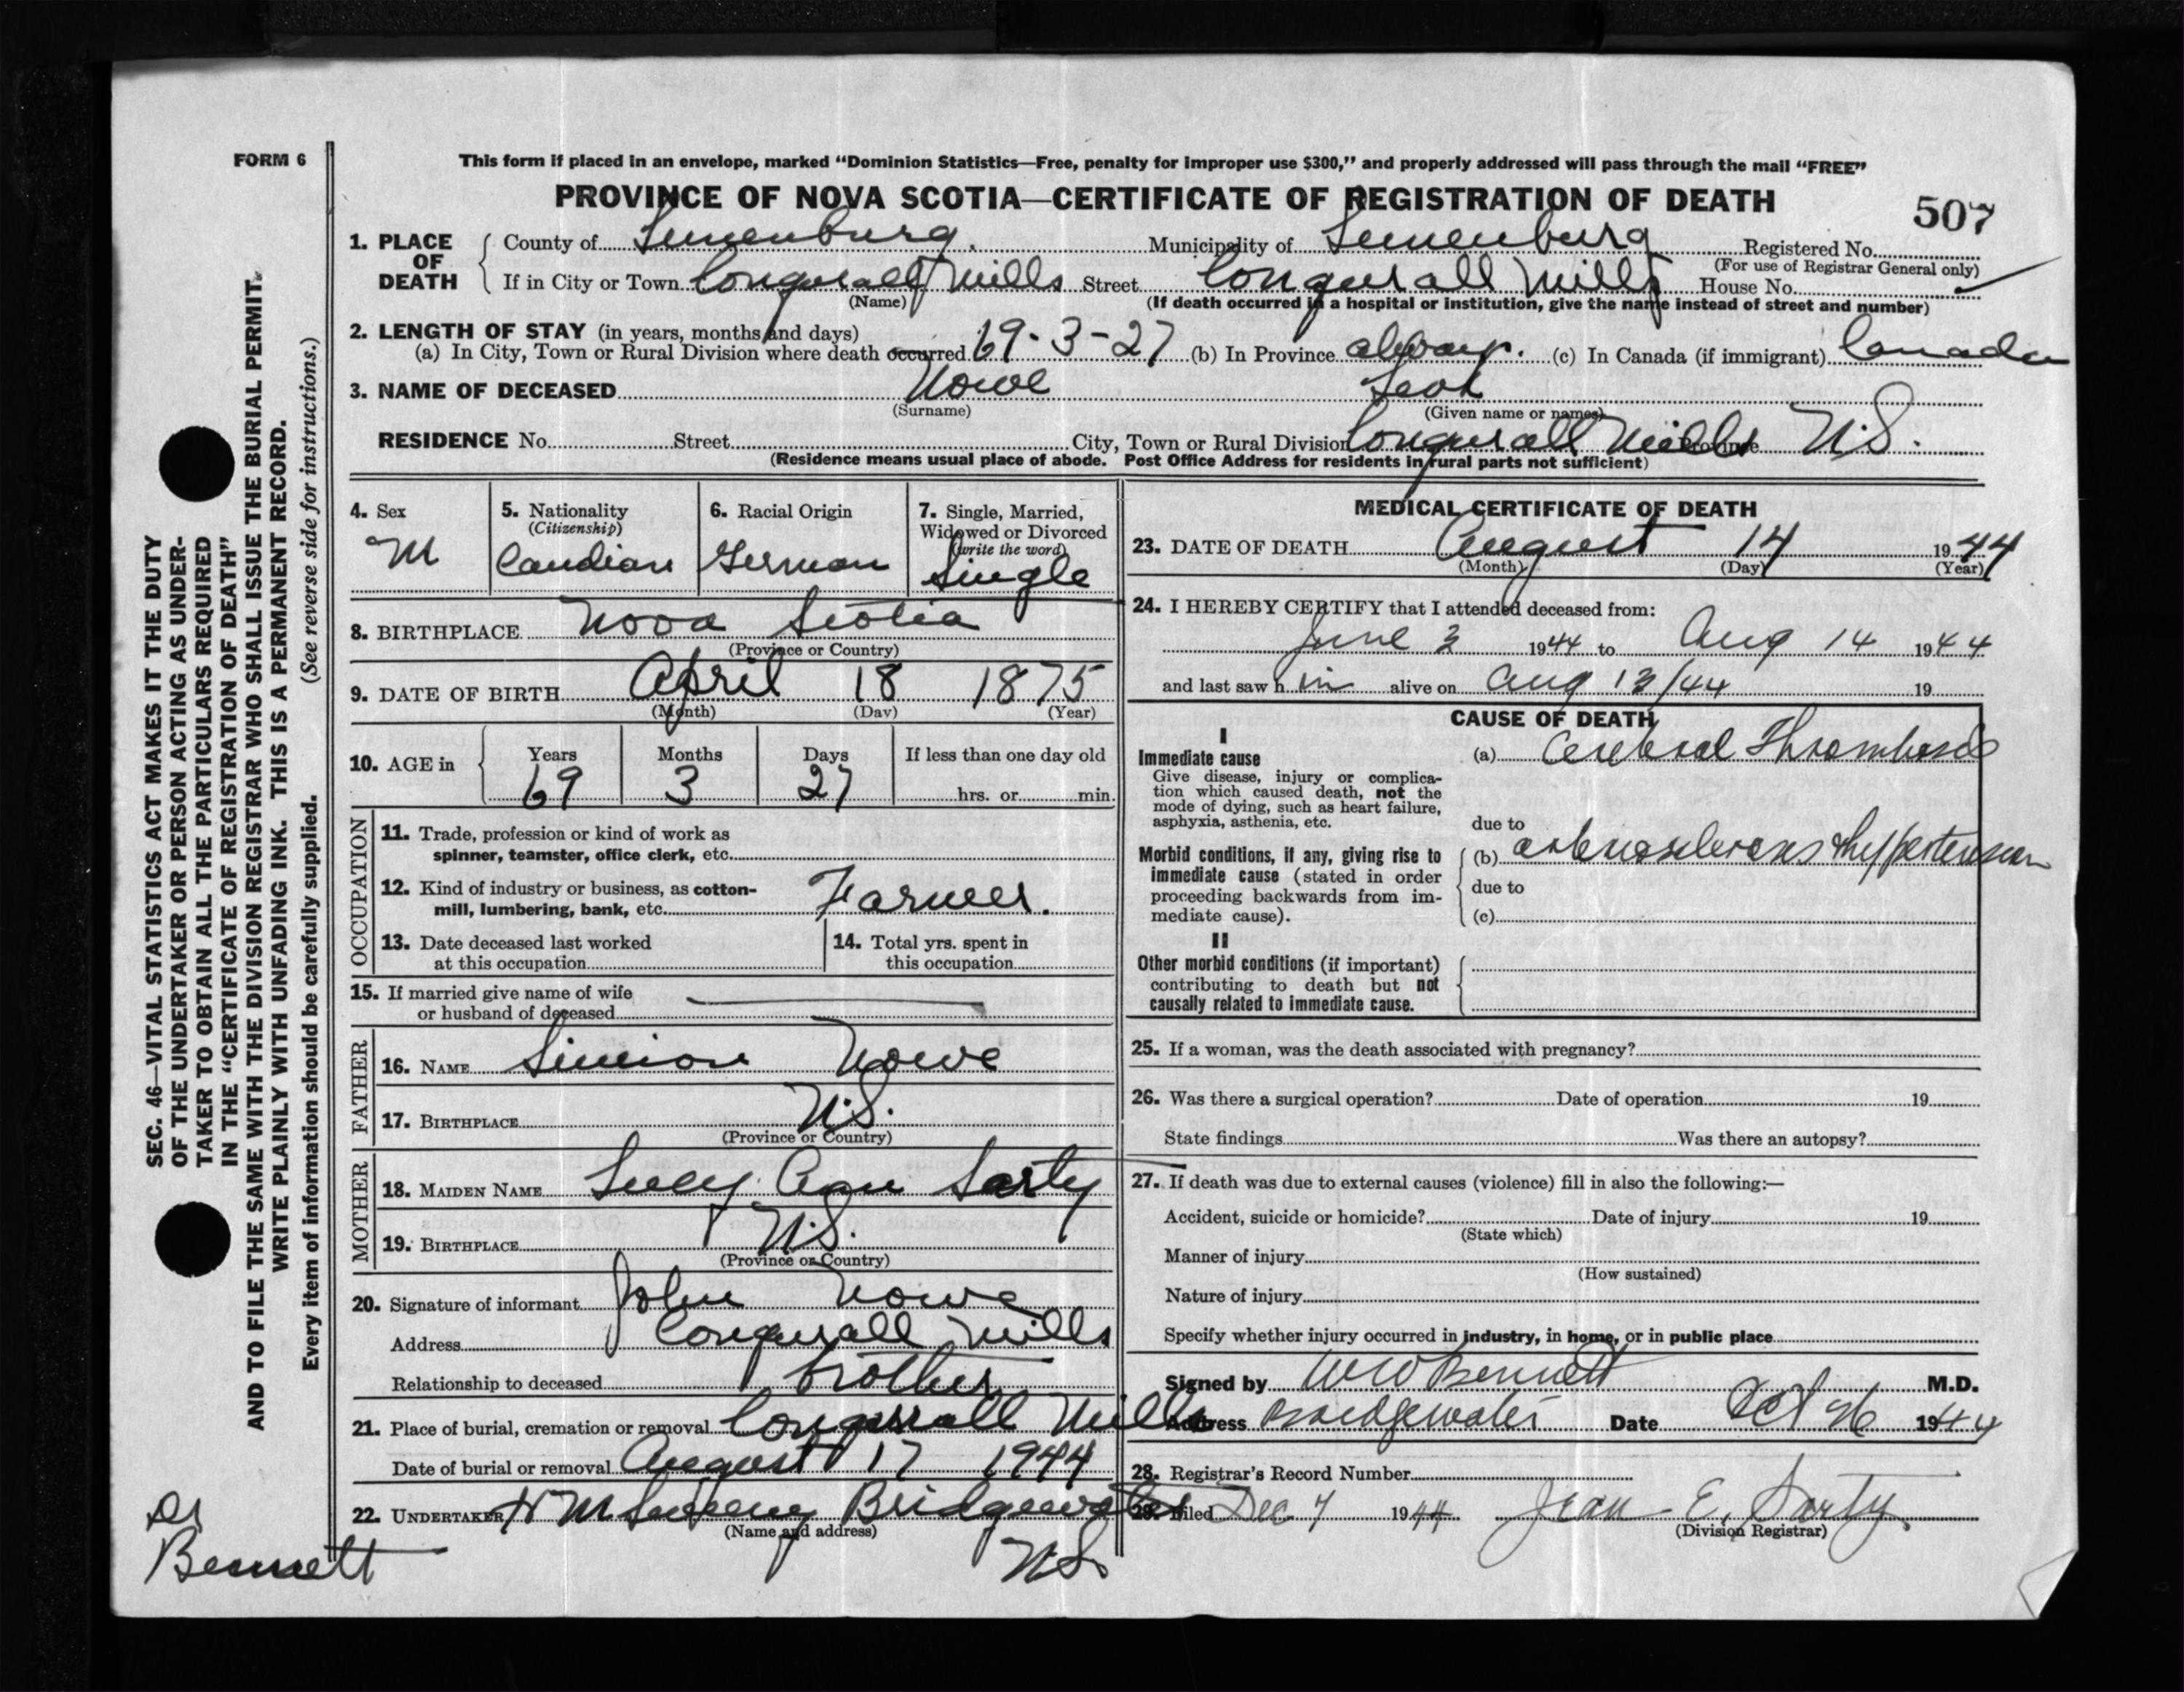 FORM 6
This form if placed in an envelope, marked "Dominion Statistics—Free, penalty for improper use $300," and properly addressed will pass through the mail "FREE"
PROVINCE OF NOVA SCOTIA—CERTIFICATE OF REGISTRATION OF DEATH
507
1. PLACE OF DEATH
County of Lunenburg. Municipality of Lunenburg Registered No.
(For use of Registrar General only)
If in City or Town Conquerall Mills Street Conquerall Mills House No.
(Name) (If death occurred in a hospital or institution, give the name instead of street and number)
2. LENGTH OF STAY (in years, months and days)
(a) In City, Town or Rural Division where death occurred 69-3-27 (b) In Province always. (c) In Canada (if immigrant) Canada
3. NAME OF DECEASED Nowe
(Surname) (Given name or names)
RESIDENCE No. Street City, Town or Rural Division Conquerall Mills Province N.S.
(Residence means usual place of abode. Post Office Address for residents in rural parts not sufficient)
4. Sex
M
5. Nationality
(Citizenship)
Candian
6. Racial Origin
German
7. Single, Married,
Widowed or Divorced
(write the word)
Single
8. BIRTHPLACE Nova Scotia
(Province or Country)
9. DATE OF BIRTH April 18 1875
(Month) (Day) (Year)
10. AGE in Years Months Days If less than one day old
69 3 27 hrs. or min.
OCCUPATION
11. Trade, profession or kind of work as
spinner, teamster, office clerk, etc.
12. Kind of industry or business, as cotton-
mill, lumbering, bank, etc. Farmer.
13. Date deceased last worked
at this occupation
14. Total yrs. spent in
this occupation
15. If married give name of wife
or husband of deceased
FATHER
16. NAME Simion Nowe
17. BIRTHPLACE N.S.
(Province or Country)
MOTHER
18. MAIDEN NAME Lucy Ann Sarty
19. BIRTHPLACE N.S.
(Province or Country)
20. Signature of informant John Nowe
Address Conquerall Mills
Relationship to deceased brother
21. Place of burial, cremation or removal Conquerall Mills
Date of burial or removal August 17 1944
22. UNDERTAKER Bridgewater
(Name and address)
N.S.
MEDICAL CERTIFICATE OF DEATH
23. DATE OF DEATH August 14 1944
(Month) (Day) (Year)
24. I HEREBY CERTIFY that I attended deceased from:
June 3 1944 to Aug 14 1944
and last saw h im alive on Aug 13/44 19
CAUSE OF DEATH
I
Immediate cause
Give disease, injury or complica-
tion which caused death, not the
mode of dying, such as heart failure,
asphyxia, asthenia, etc.
(a) Cerebral Thrombosis
due to
Morbid conditions, if any, giving rise to
immediate cause (stated in order
proceeding backwards from im-
mediate cause).
(b) arteriosclerosis & hypertension
due to
(c)
II
Other morbid conditions (if important)
contributing to death but not
causally related to immediate cause.
25. If a woman, was the death associated with pregnancy?
26. Was there a surgical operation? Date of operation 19
State findings Was there an autopsy?
27. If death was due to external causes (violence) fill in also the following:—
Accident, suicide or homicide? Date of injury 19
(State which)
Manner of injury
(How sustained)
Nature of injury
Specify whether injury occurred in industry, in home, or in public place
Signed by WW Bennett M.D.
Address Bridgewater Date Oct 26 1944
28. Registrar's Record Number
29. Filed Dec 7 1944 Jean E. Sarty
(Division Registrar)
SEC. 46—VITAL STATISTICS ACT MAKES IT THE DUTY
OF THE UNDERTAKER OR PERSON ACTING AS UNDER-
TAKER TO OBTAIN ALL THE PARTICULARS REQUIRED
IN THE "CERTIFICATE OF REGISTRATION OF DEATH"
AND TO FILE THE SAME WITH THE DIVISION REGISTRAR WHO SHALL ISSUE THE BURIAL PERMIT.
WRITE PLAINLY WITH UNFADING INK. THIS IS A PERMANENT RECORD.
Every item of information should be carefully supplied. (See reverse side for instructions.)
Dr
Bennett